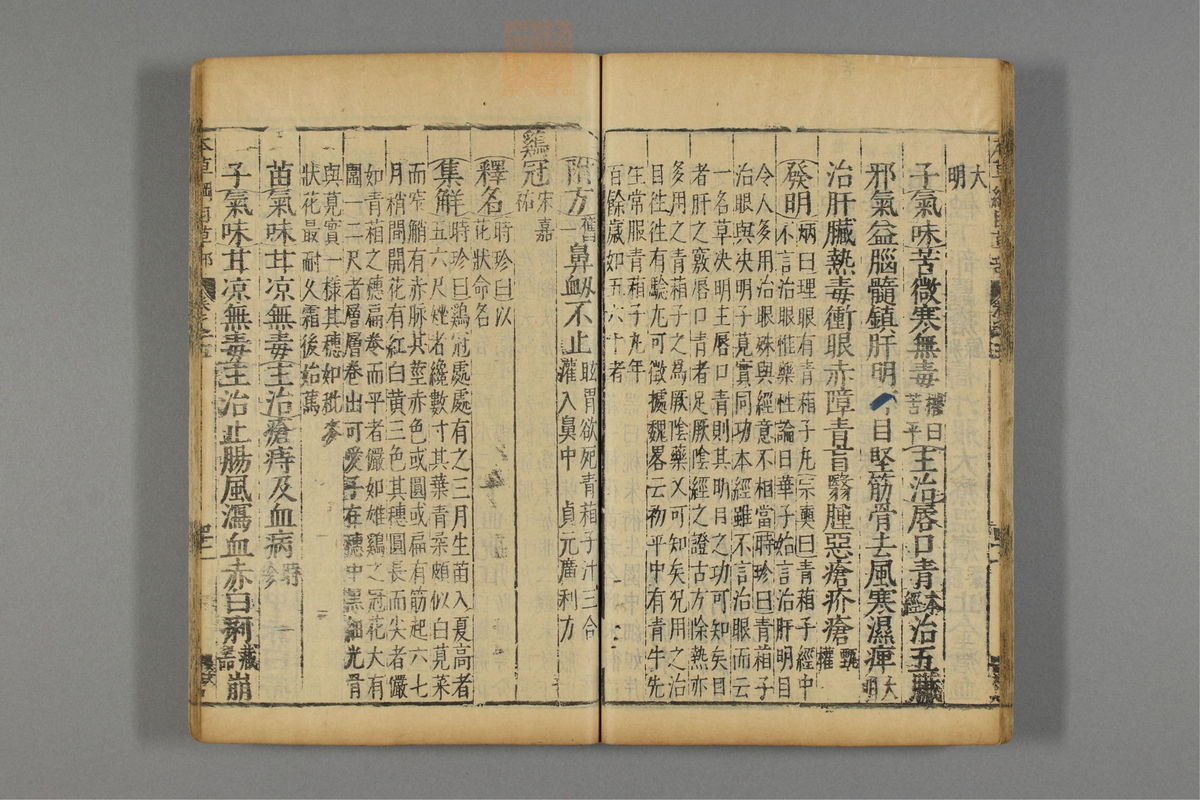 大明
子氣味苦微寒無毒權曰苦平主治唇口青本經治五臟
邪氣益腦髓鎮肝明耳目堅筋骨去風寒濕痺大明
治肝臟熱毒衝眼赤障青盲翳腫惡瘡疥瘡甄權
發明炳曰理眼有青葙子丸宗奭曰青葙子經中
不言治眼惟藥性論日華子始言治肝明目
今人多用治眼殊與經意不相當時珍曰青葙子
治眼與决明子莧實同功本經雖不言治眼而云
一名草决明主唇口青則其明目之功可知矣目
者肝之竅唇口青者足厥陰經之證古方除熱亦
多用之青葙子之爲厥陰藥又可知矣况用之治
目往往有驗尤可徵據魏畧云初平中有青牛先
生常服青葙子丸年
百餘歲如五六十者
附方舊一鼻衄不止眩冒欲死青葙子汁三合
灌入鼻中 貞元廣利方
鷄冠宋嘉祐
釋名時珍曰以
花狀命名
集解時珍曰鷄冠處處有之三月生苗入夏高者
五六尺矬者纔數寸其葉青柔頗似白莧菜
而窄䚹有赤脉其莖赤色或圓或扁有筋起六七
月稍間開花有紅白黄三色其穗圓長而尖者儼
如青葙之穗扁卷而平者儼如雄鷄之冠花大有
圍一二尺者層層卷出可愛子在穗中黑細光滑
與莧實一様其穗如秕麥
狀花最耐久霜後始蔫
苗氣味甘凉無毒主治瘡痔及血病時珍
子氣味甘凉無毒主治止腸風瀉血赤白痢藏器崩